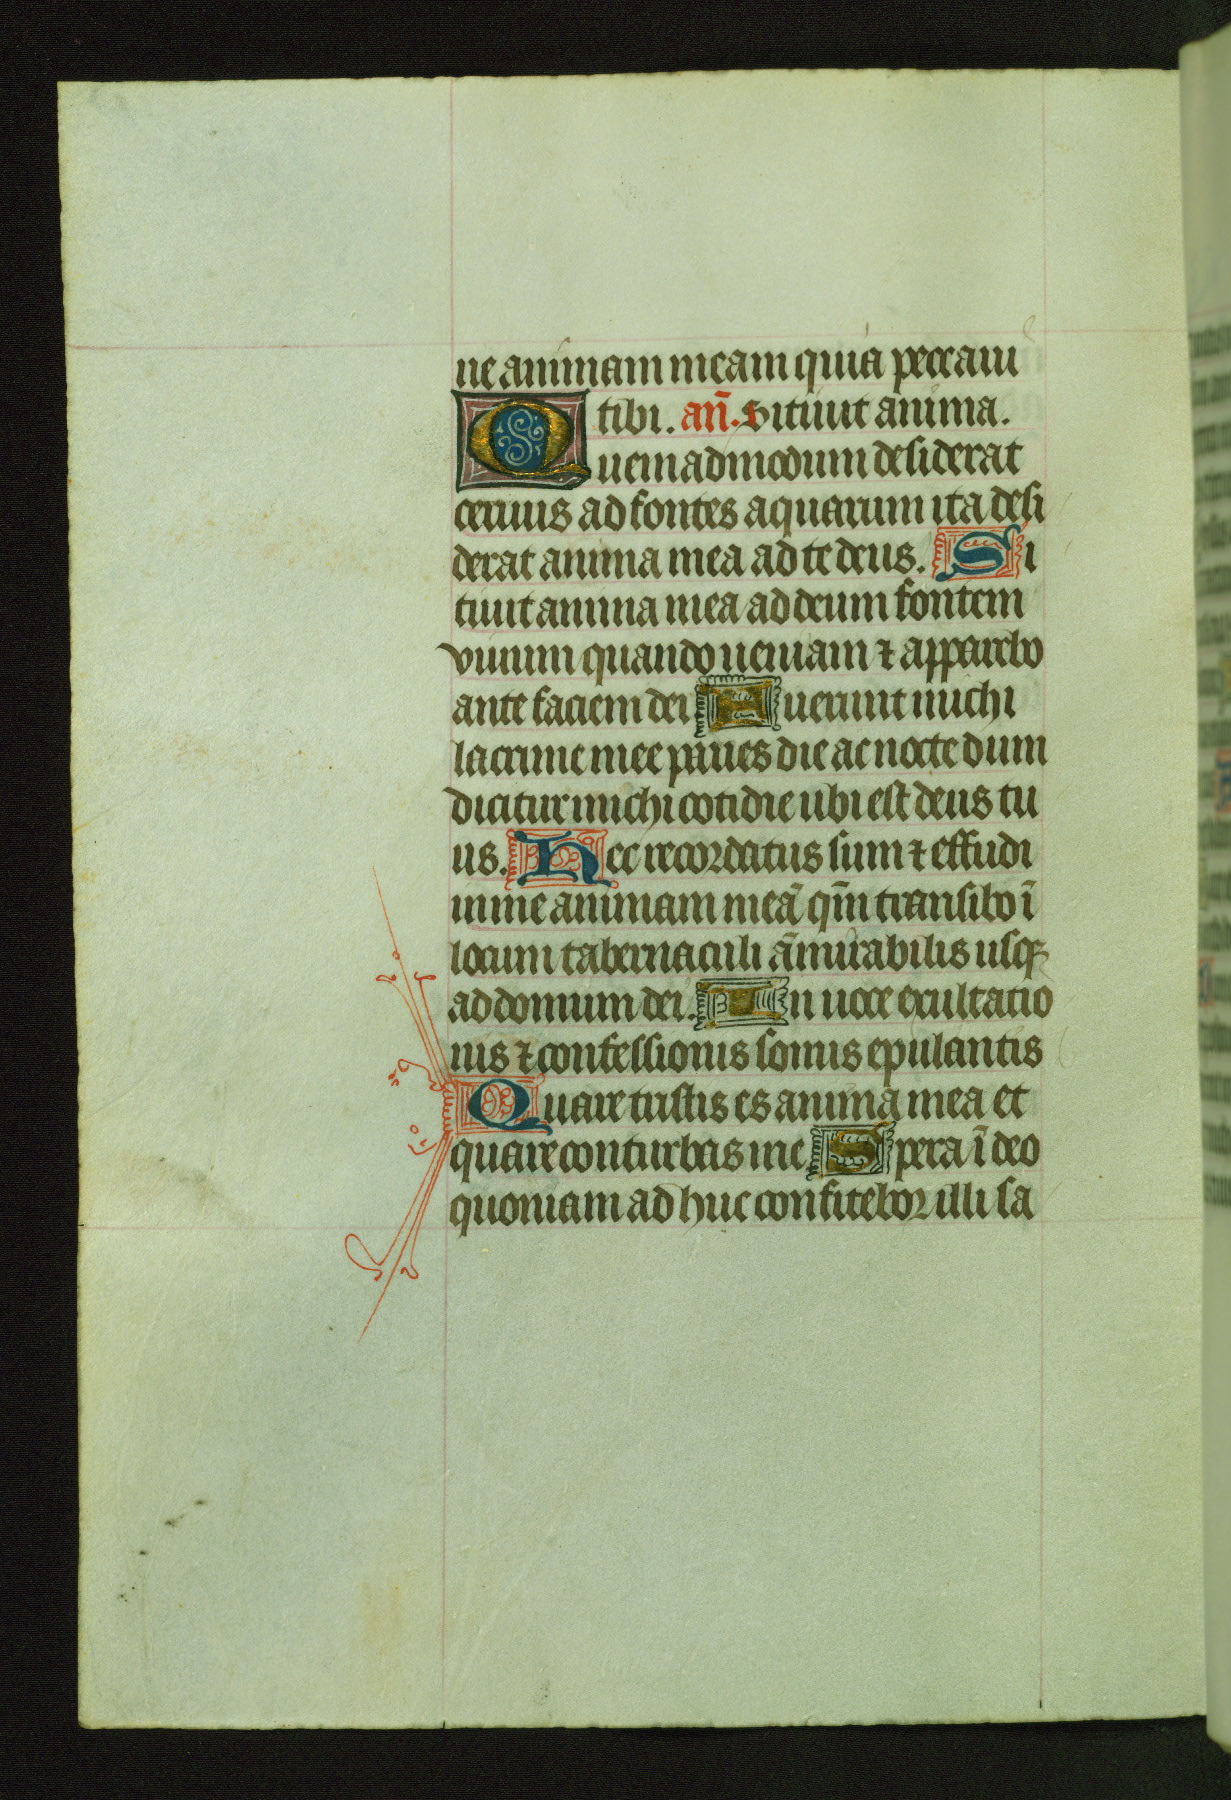 ne animam meam quia peccaui
tibi. an̄. Sitiuit anima.
Quemadmodum desiderat
ceruus ad fontes aquarum ita desi
derat anima mea ad te deus. Si
tiuit anima mea ad deum fontem
viuum quando ueniam ⁊ apparebo
ante faciem dei Fuerunt michi
lacrime mee panes die ac nocte dum
dicitur michi cotidie ubi est deus tu
us. Hec recordatus sum ⁊ effudi
in me animam meā qm̄ transibo ī
locum tabernaculi āmirabilis usqꝫ
ad domum dei. In uoce exultatio
nis ⁊ confessionis sonus epulantis
Quare tristis es anima mea et
quare conturbas me Spera ī deo
quoniam ad huc confitebor illi sa